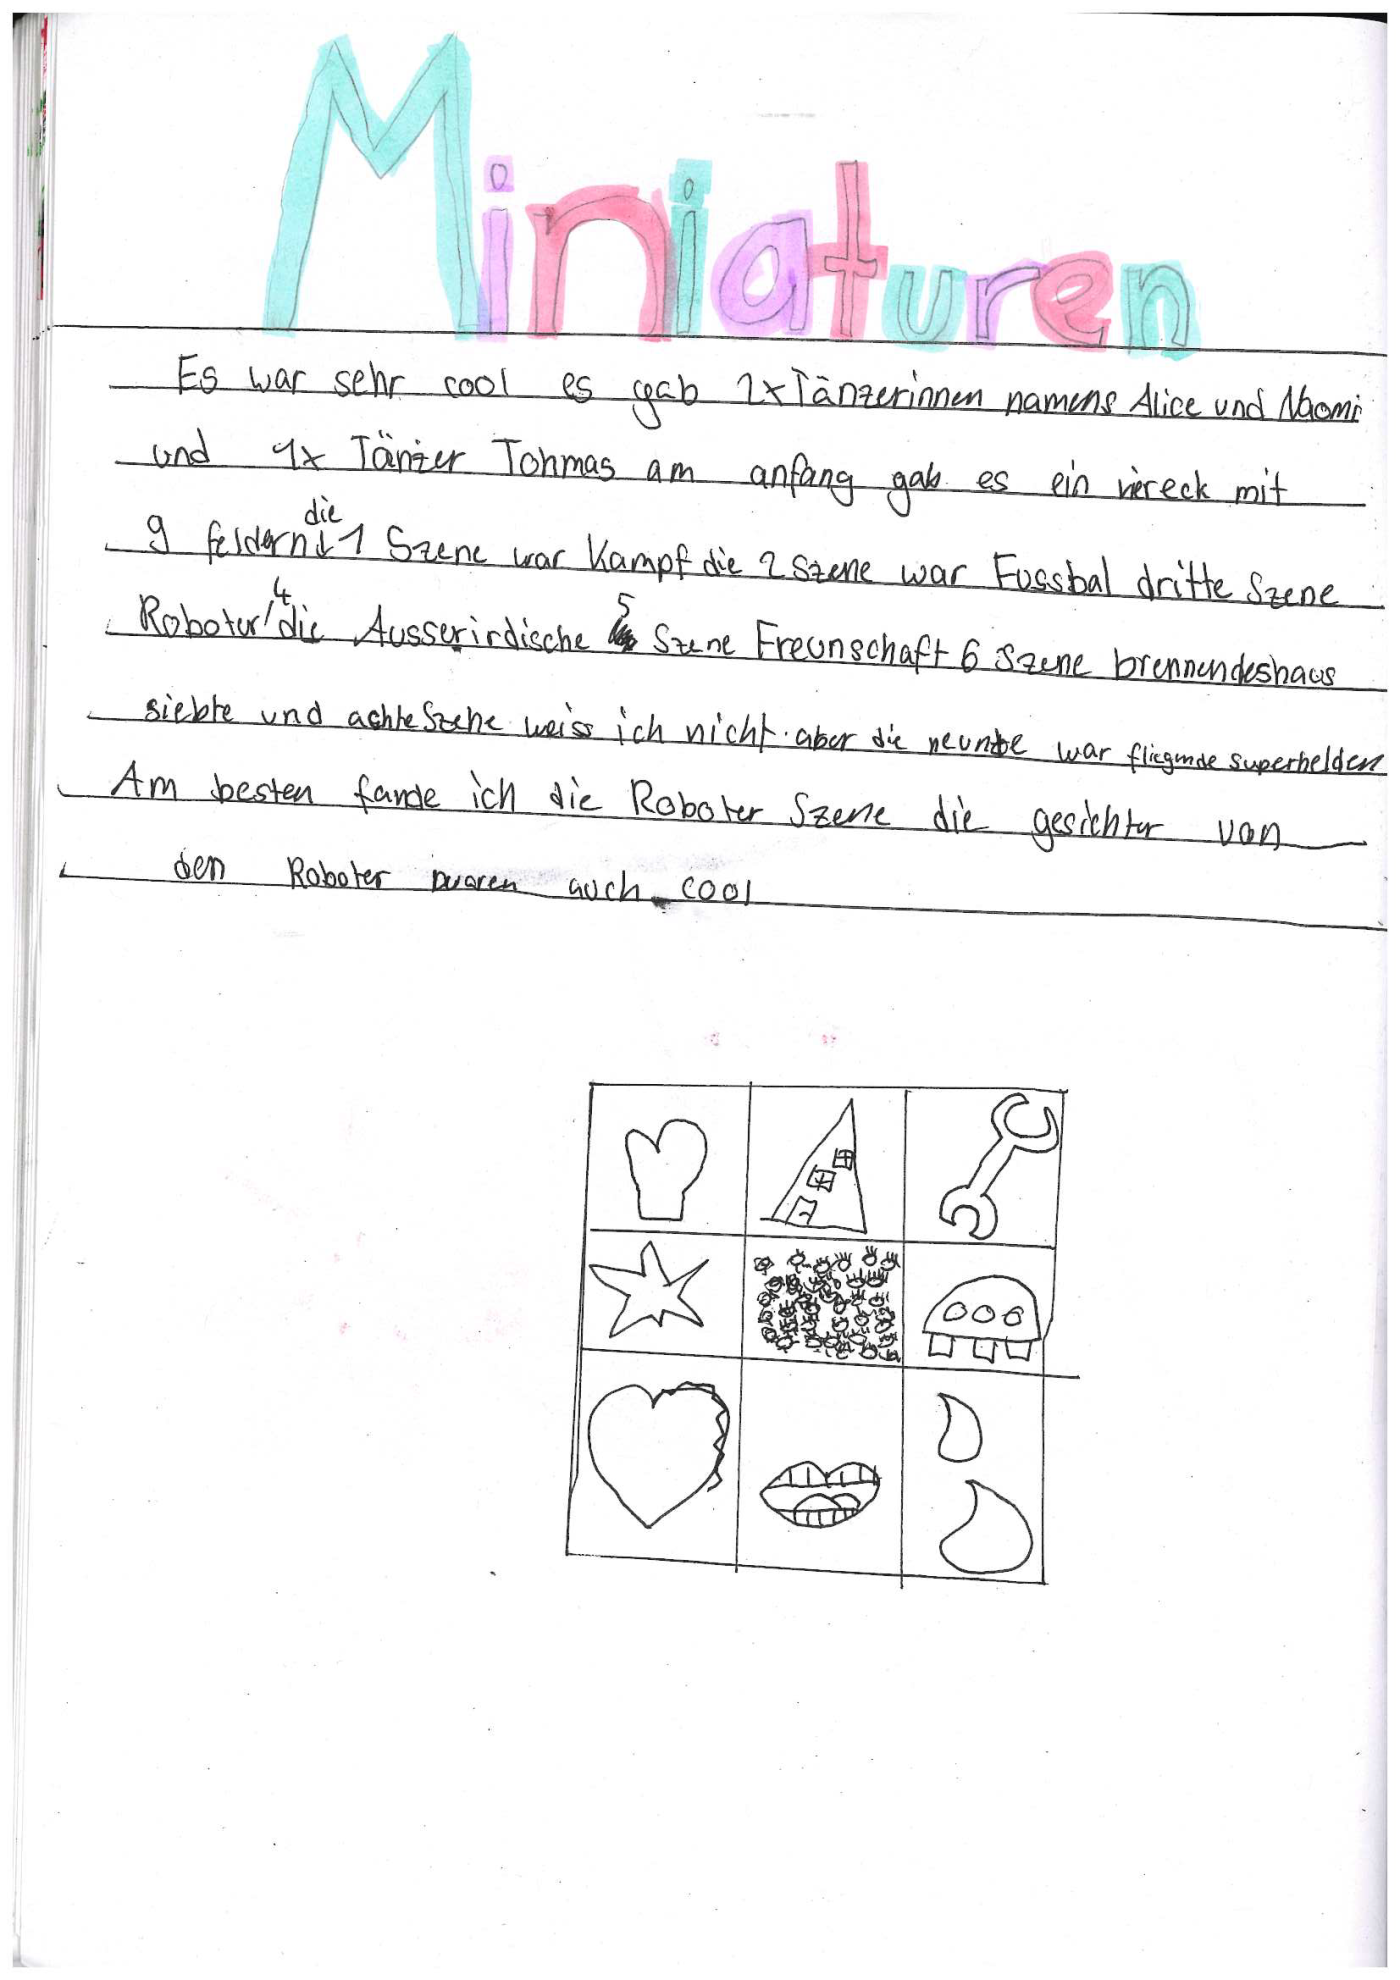 Miniaturen
Es war sehr cool es gab 2x Tänzerinnen namens Alice und Naomi
und 1x Tänzer Tohmas am anfang gab es ein viereck mit
9 feldern die ↓ 1 Szene war Kampf die 2 Szene war Fussbal dritte Szene
Roboter / 4 die Ausserirdische 5 Szene Freunschaft 6 Szene brennendeshaus
siebte und achte Szene weiss ich nicht. aber die neunte war fliegende superhelden
Am besten fande ich die Roboter Szene die gesichter von
den Roboter waren auch cool